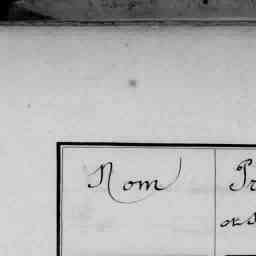 Nom
Pr